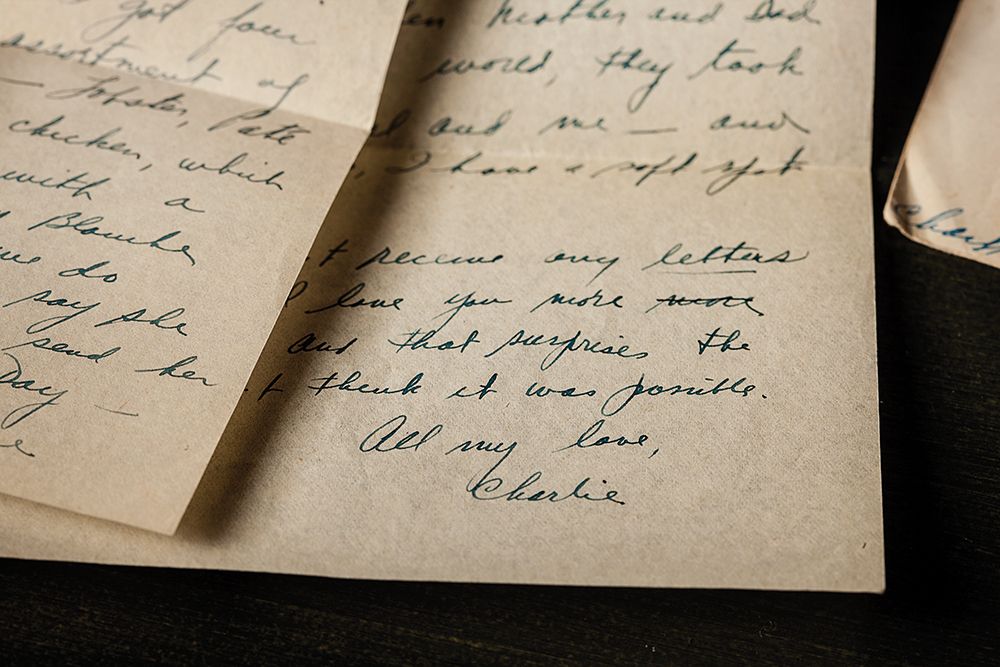 got four
assortment of
— Lobster, Pate
chicken, which
with a
Blanche
me do
say she
send her
Day —
Mother and Dad
world, they took
and me — and
, I have a soft spot
receive any letters
I love you more more
and that surprises the
think it was possible.
All my love,
Charlie